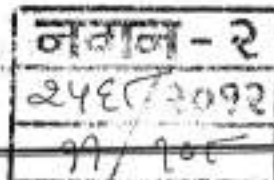 ननन - २
२५६८/२०१२
११/१०८